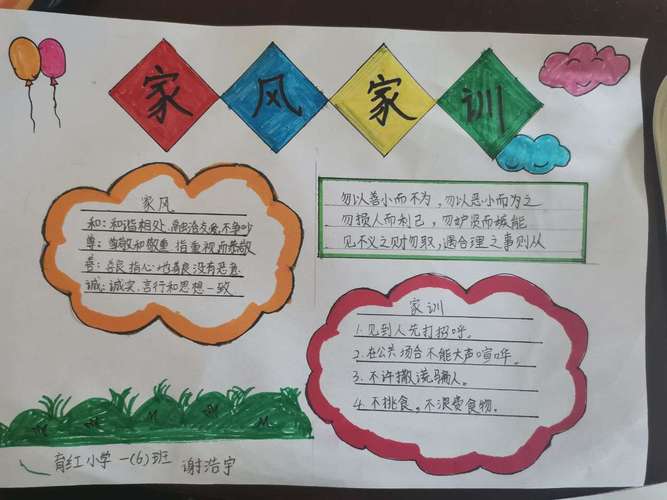 家风家训
家风
和：和谐相处，融洽友爱，不争吵
尊：尊敬和敬重，指重视而恭敬
善：善良，指心地善良没有恶意
诚：诚实，言行和思想一致
勿以善小而不为，勿以恶小而为之
勿损人而利己，勿妒贤而嫉能
见不义之财勿取，遇合理之事则从
家训
1.见到人先打招呼。
2.在公共场合不能大声喧哗。
3.不许撒谎骗人。
4.不挑食。不浪费食物。
育红小学一(6)班 谢浩宇